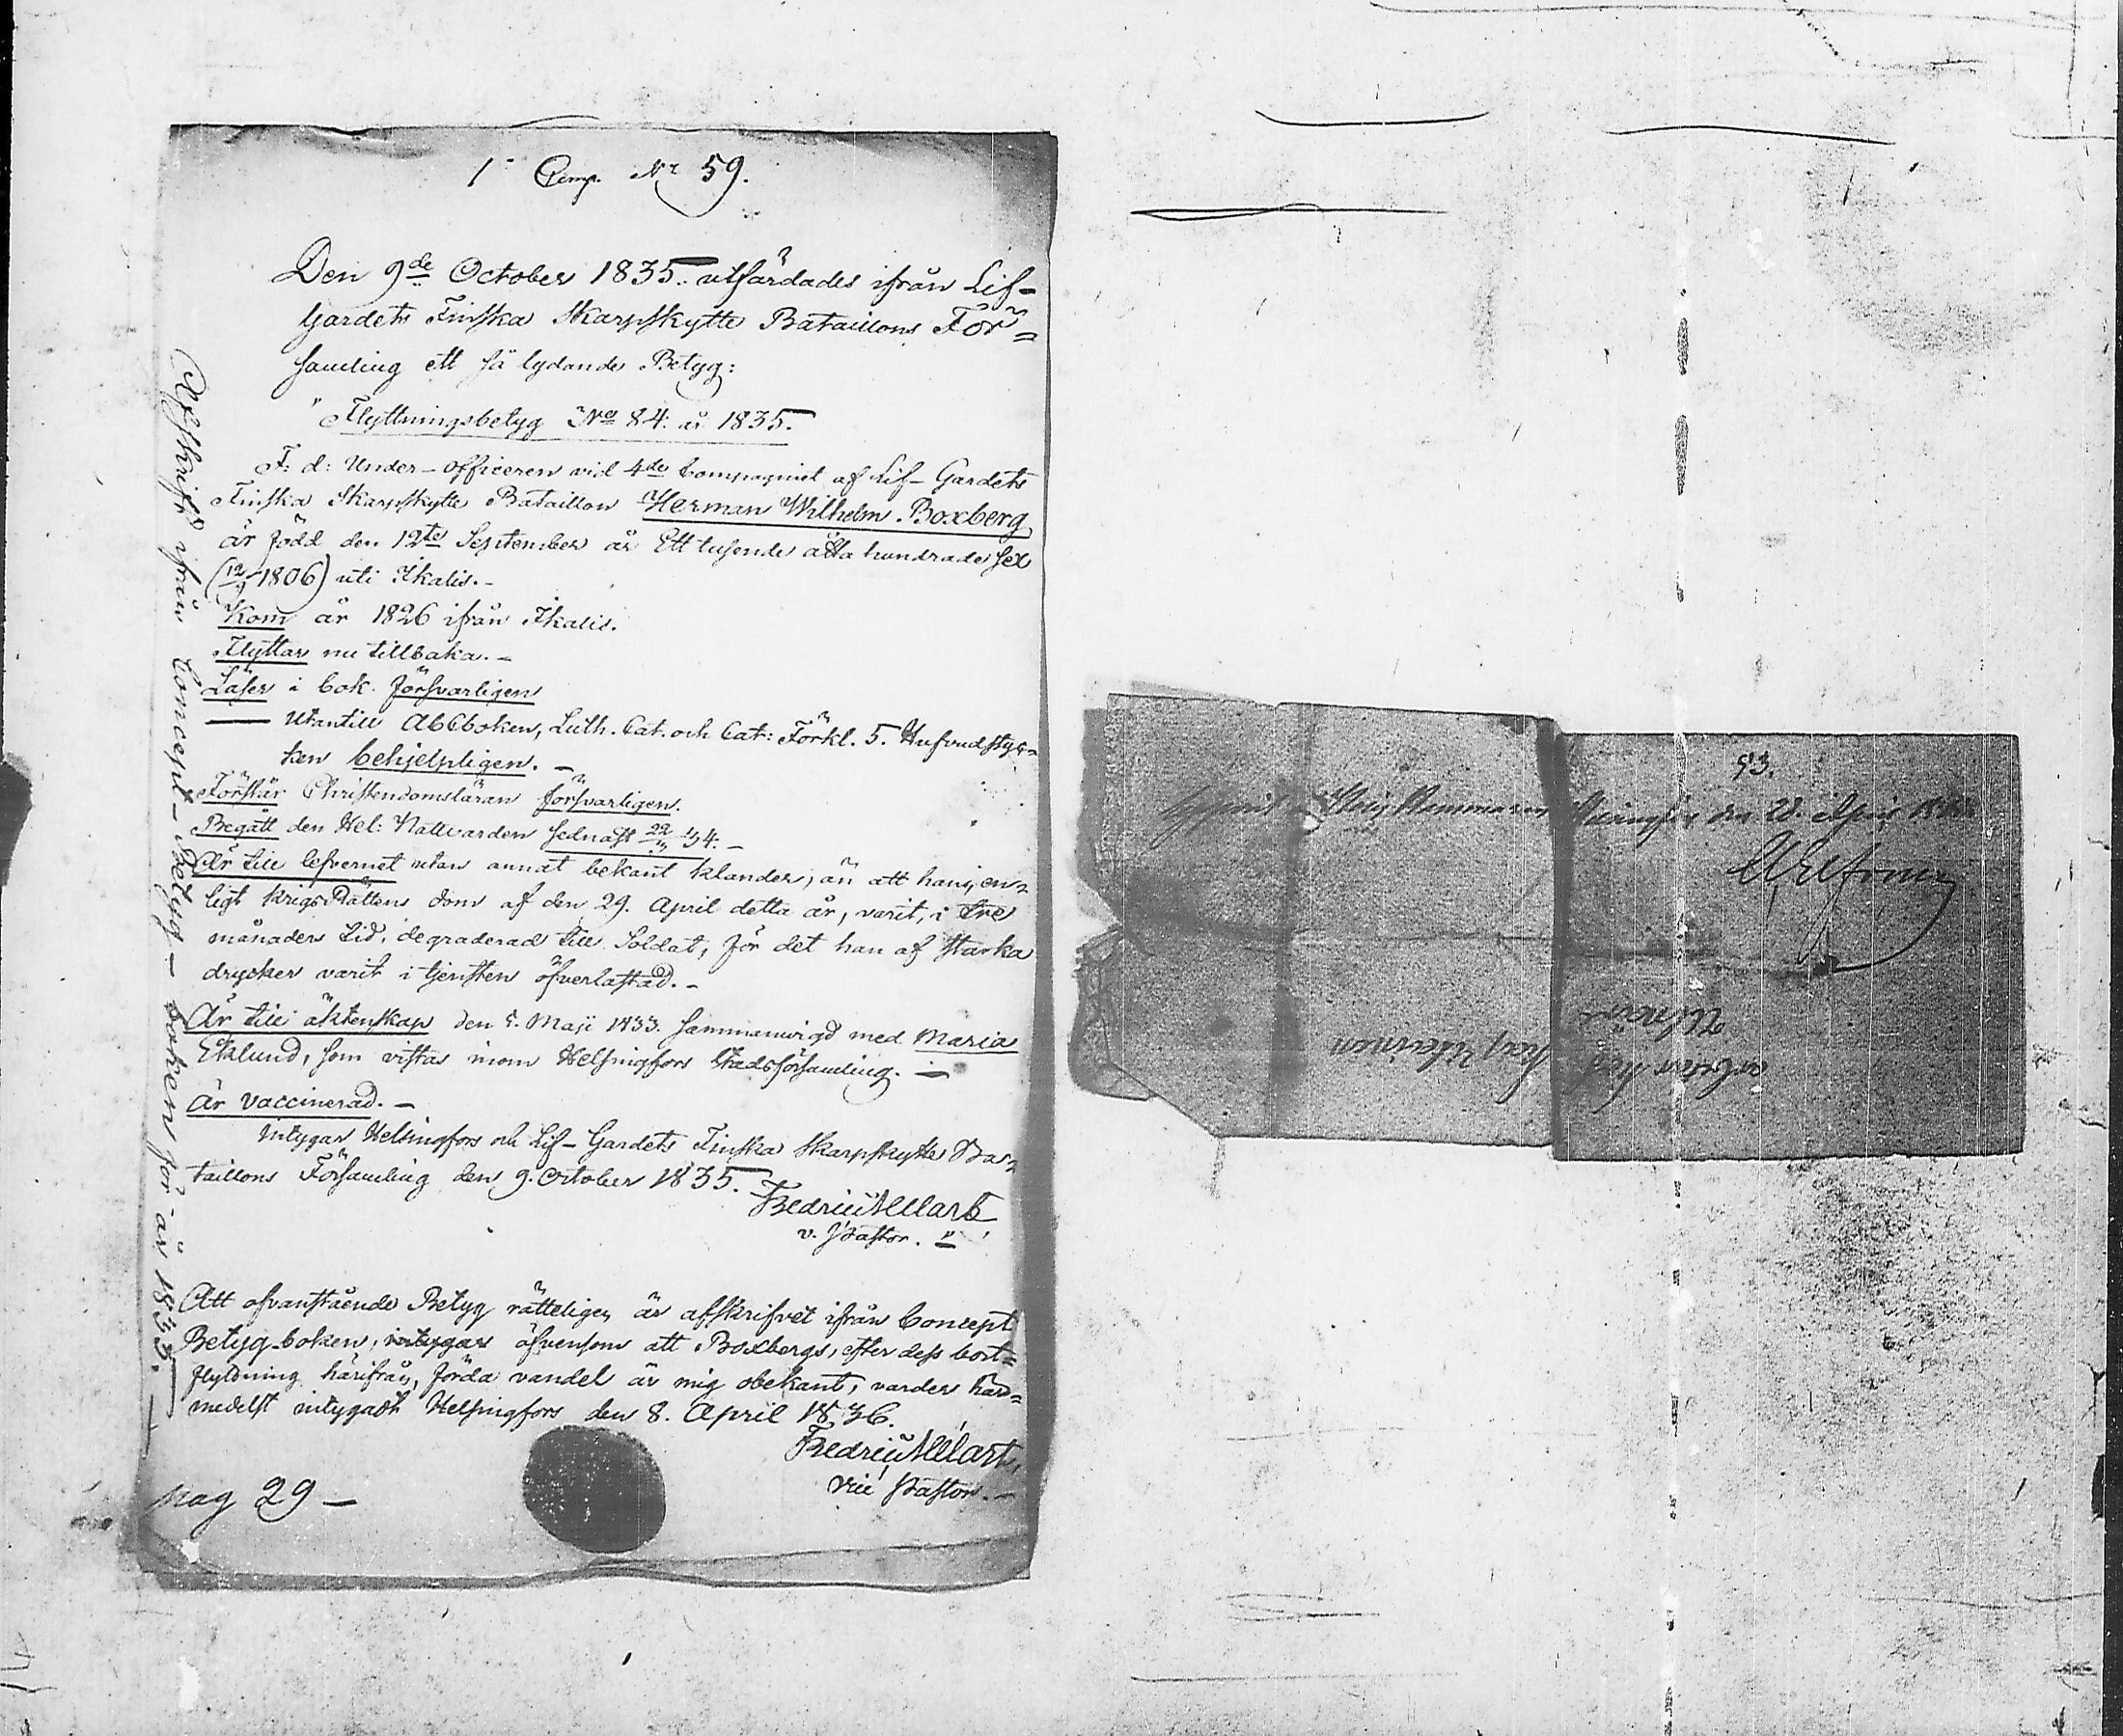 1 Comp. Nr 59.
Den 9de October 1835. utfärdades ifrån Lif-
Gardets Finska Skarpskytte Bataillons För=
samling ett så lydande Betyg:
"Flyttningsbetyg No 84: år 1835.
F: d: Under-officeren vid 4de Compagniet af Lif-Gardets
Finska Skarpskytte Bataillon Herman Wilhelm Boxberg
är född den 12te September år Ett tusende åtta hundrade sex
(12/9 1806) uti Ikalis.-
Kom år 1826 ifrån Ikalis.
Flyttar nu tillbaka.-
Läser i bok försvarligen
— utantill Abcboken, Luth. Cat. och Cat: Förkl. 5. Hufvudstyc=
ken behjelpligen.-
Förstår Christendomsläran försvarligen.
Begått den Hel: Nattvarden sednast 34:-
Är till lefvernet utan annat bekant klander, än att han, en=
ligt KrigsRättens dom af den 29. April detta år, varit, i tre
månaders tid, degraderad till Soldat, för det han af starka
drycker varit i tjensten öfverlastad.-
Är till äktenskap den 5. Maji 1833. sammanvigd med Maria
Eklund, som vistas inom Helsingfors Stadsförsamling.-
Är vaccinerad.-
Intygar Helsingfors och Lif-Gardets Finska Skarpskytte Ba=
taillons Församling den 9. October 1835.
Fredric
v. Pastor.
Att ofvanstående Betyg rätteligen är afskrifvet ifrån Concept
Betyg-boken, intygas äfvensom att Boxbergs, efter dess bort=
flyttning härifrån, förda vandel är mig obekant, varder här=
medelst intygadt Helsingfors den 8. April 1836.
Fredric
Vice Pastor.-
pag 29-
Afskrift ifrån Concept-Betyg-boken för år 1835.
93.
den 28. April